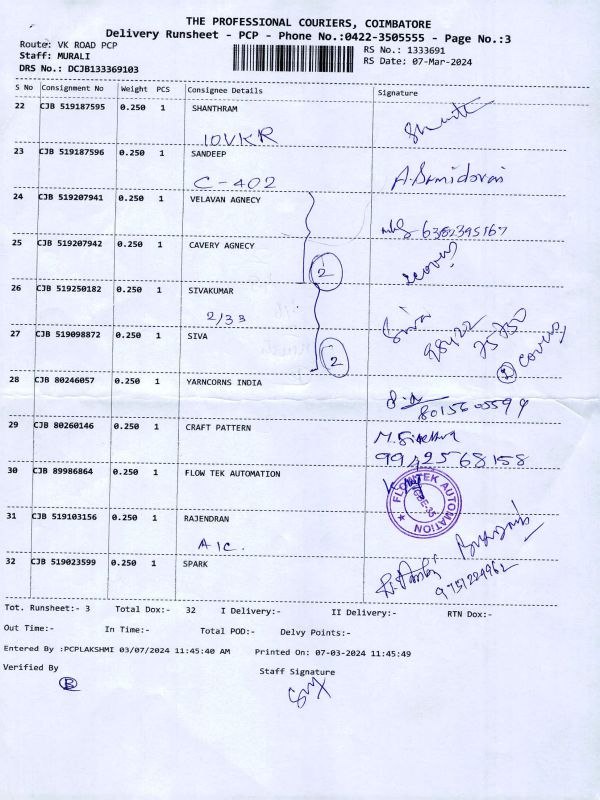 THE PROFESSIONAL COURIERS, COIMBATORE
Delivery Runsheet - PCP - Phone No.:0422-3505555 - Page No.:3
Route: VK ROAD PCP
RS No.: 1333691
Staff: MURALI
RS Date: 07-Mar-2024
DRS No.: DCJB133369103
S No Consignment No Weight PCS Consignee Details Signature
22 CJB 519187595 0.250 1 SHANTHRAM
10.V.K.R
23 CJB 519187596 0.250 1 SANDEEP
C-402
24 CJB 519207941 0.250 1 VELAVAN AGNECY
6382395167
25 CJB 519207942 0.250 1 CAVERY AGNECY
2
26 CJB 519250182 0.250 1 SIVAKUMAR
2/33 Siva
27 CJB 519098872 0.250 1 SIVA
2 2 covers
28 CJB 80246057 0.250 1 YARNCORNS INDIA
29 CJB 80260146 0.250 1 CRAFT PATTERN
9942568158
30 CJB 89986864 0.250 1 FLOW TEK AUTOMATION
FLOWTEK AUTOMATION
31 CJB 519103156 0.250 1 RAJENDRAN
A/C.
32 CJB 519023599 0.250 1 SPARK
9751224962
Tot. Runsheet:- 3 Total Dox:- 32 I Delivery:- II Delivery:- RTN Dox:-
Out Time:- In Time:- Total POD:- Delvy Points:-
Entered By :PCPLAKSHMI 03/07/2024 11:45:40 AM Printed On: 07-03-2024 11:45:49
Verified By Staff Signature